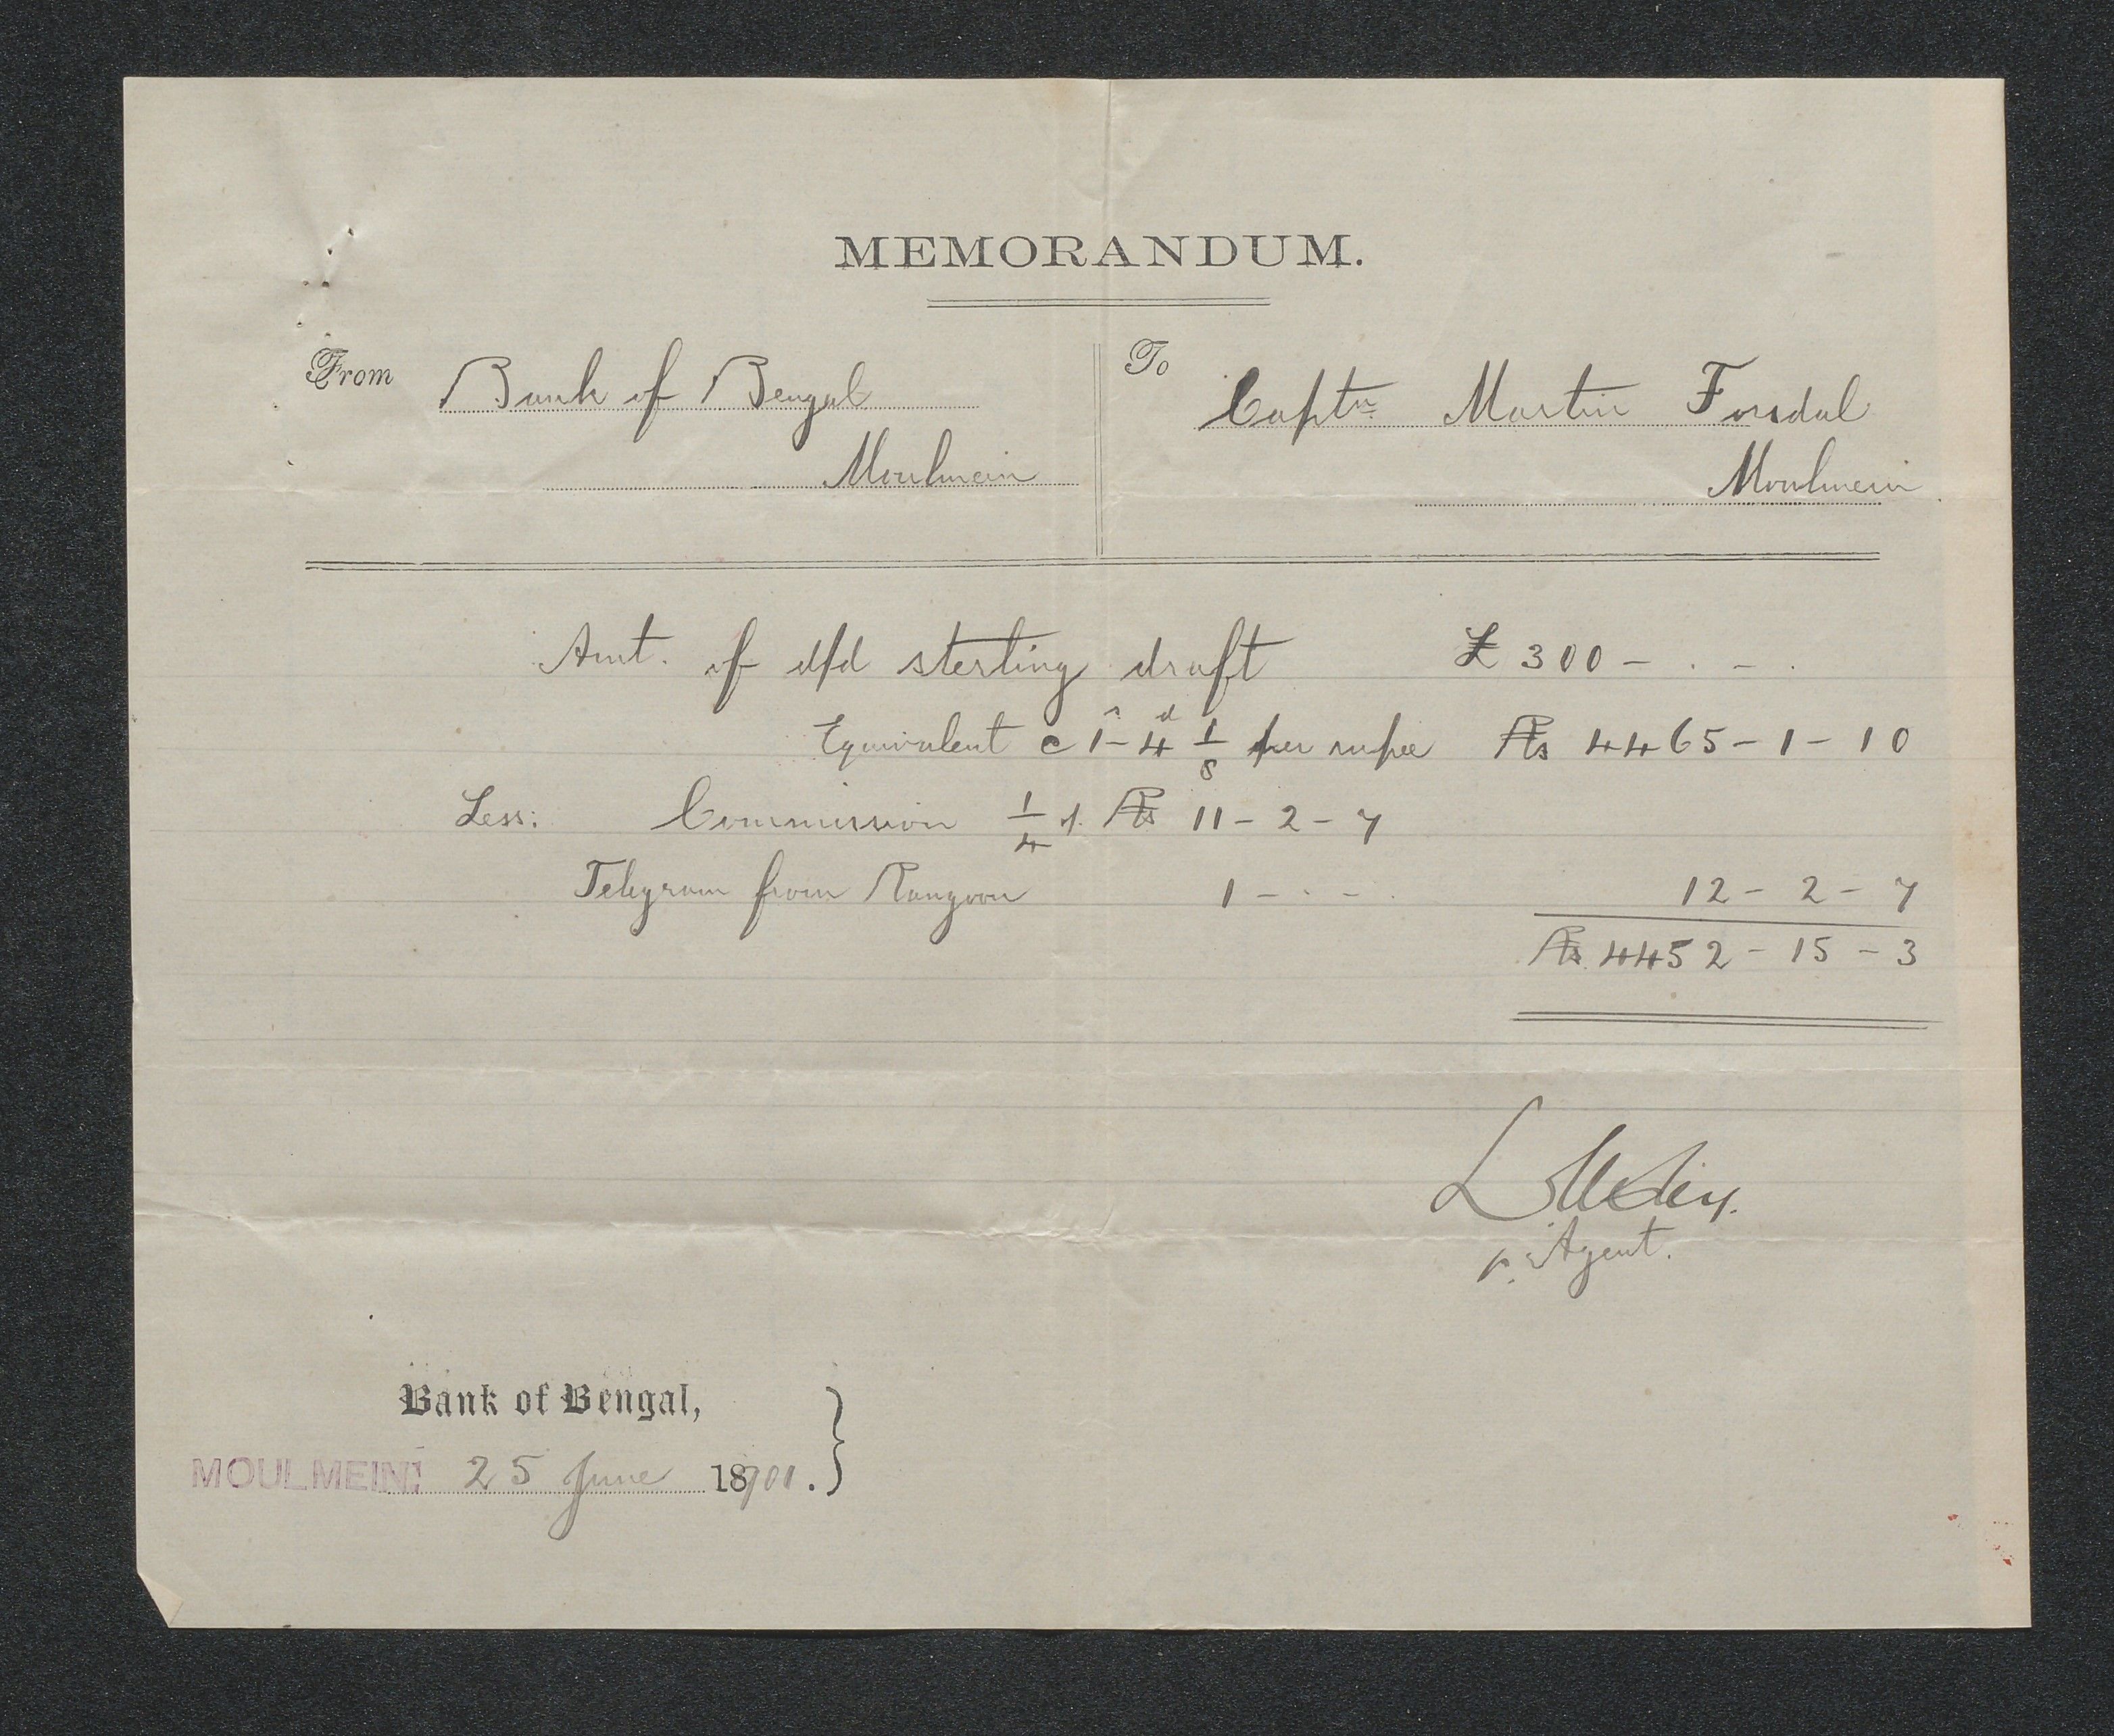 MEMORANDUM.
From Bank of Bengal
Moulmein
To Captn Martin Forsdal
Moulmein
Amt. of d/d sterling draft £ 300 - . - .
Equivalent @ 1s - 4d 1/8 per rupee Rs 4465 - 1 - 10
Less: Commission 1/4 % Rs 11 - 2 - 7
Telegram from Rangoon 1 - . - . 12 - 2 - 7
Rs 4452 - 15 - 3
p. Agent.
Bank of Bengal,
MOULMEIN 25 June 1901.